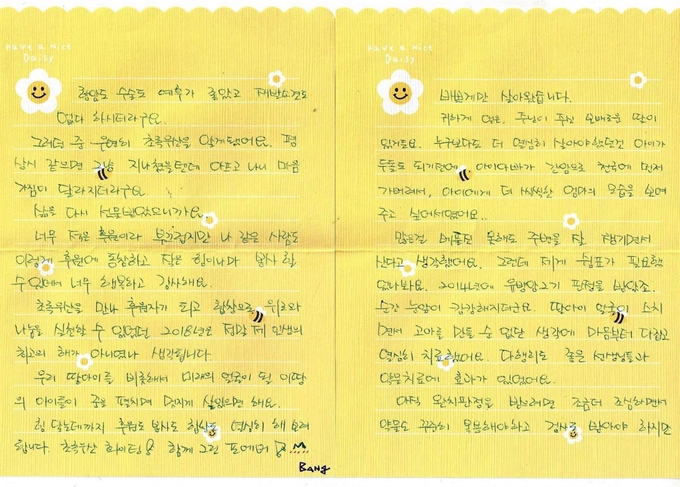 Have a Nice
Daisy
항암도 수술도 예후가 좋았고 재발소견도
없다 하시더라구요.
그러던 중 우연히 초록우산을 알게됐어요. 평
상시 같으면 그냥 지나쳤을텐데 아프고 나니 마음
가짐이 달라지더라구요.
삶을 다시 선물받았으니까요.
너무 적은 후원이라 부끄럽지만 나 같은 사람도
이렇게 후원에 동참하고 작은 힘이나마 봉사 할
수 있어서 너무 행복하고 감사해요.
초록우산을 만나 후원자가 되고 합창으로 위로와
나눔을 실천할 수 있었던 2018년은 정말 제 인생의
최고의 해가 아니였나 생각됩니다
우리 딸아이를 비롯해서 미래의 얼굴이 될 이땅
의 아이들이 꿈을 펼치며 멋지게 살았으면 해요.
힘 닿는데까지 후원도 봉사도 합창도 열심히 해 보려
합니다. 초록우산 화이팅 함께 그린 포에버
Bang
Have a Nice
Daisy
바쁘게만 살아왔습니다.
귀하게 얻은, 주님이 주신 보배로운 딸이
있거든요. 누구보다도 더 열심히 살아야했던건 아이가
두돌도 되기전에 아이아빠가 간암으로 천국에 먼저
가버려서, 아이에게 더 씩씩한 엄마의 모습을 보여
주고 싶어서였어요..
많은걸 베풀진 못해도 주변을 잘 챙기면서
산다고 생각했어요. 그런데 제게 쉼표가 필요했
었나봐요. 2014년에 유방암2기 판정을 받았죠.
순간 눈앞이 캄캄해지더군요. 딸아이 얼굴이 스치
면서 고아를 만들 순 없단 생각에 마음부터 다잡고
열심히 치료했어요. 다행히도 좋은 선생님들과
약물치료에 효과가 있었어요.
아직 완치판정을 받으려면 조금더 조심하면서
약물도 꾸준히 복용해야하고 검사도 받아야 하지만